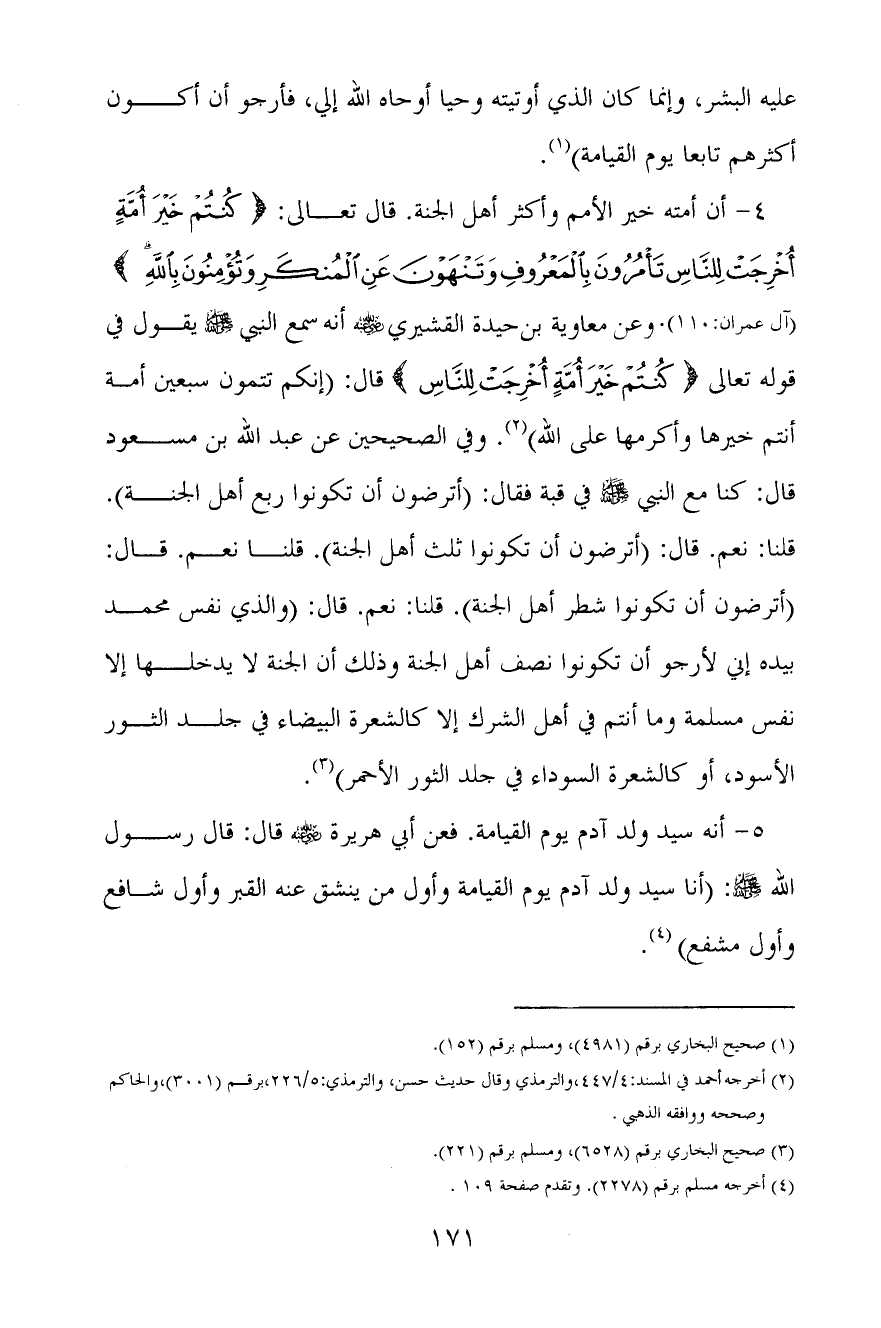 عليه البشر، وإنما كان الذي أوتيته وحيا أوحاه الله إلي، فأرجو أن أكـــــون
أكثرهم تابعا يوم القيامة)(١).
٤- أن أمته خير الأمم وأكثر أهل الجنة. قال تعـــالى: ﴿ كُنتُمْ خَيْرَ أُمَّةٍ
أُخْرِجَتْ لِلنَّاسِ تَأْمُرُونَ بِٱلْمَعْرُوفِ وَتَنْهَوْنَ عَنِ ٱلْمُنكَرِ وَتُؤْمِنُونَ بِٱللَّهِ ۗ ﴾
(آل عمران:١١٠). وعن معاوية بن حيدة القشيري ﵁ أنه سمع النبي ﷺ يقـــول في
قوله تعالى ﴿ كُنتُمْ خَيْرَ أُمَّةٍ أُخْرِجَتْ لِلنَّاسِ ﴾ قال: (إنكم تتمون سبعين أمـة
أنتم خيرها وأكرمها على الله)(٢). وفي الصحيحين عن عبد الله بن مســـعود
قال: كنا مع النبي ﷺ في قبة فقال: (أترضون أن تكونوا ربع أهل الجنـــــة).
قلنا: نعم. قال: (أترضون أن تكونوا ثلث أهل الجنة). قلنـــا نعـــم. قـــال:
(أترضون أن تكونوا شطر أهل الجنة). قلنا: نعم. قال: (والذي نفس محمـــد
بيده إني لأرجو أن تكونوا نصف أهل الجنة وذلك أن الجنة لا يدخلـــها إلا
نفس مسلمة وما أنتم في أهل الشرك إلا كالشعرة البيضاء في جلـــد الثـــور
الأسود، أو كالشعرة السوداء في جلد الثور الأحمر)(٣).
٥- أنه سيد ولد آدم يوم القيامة. فعن أبي هريرة ﵁ قال: قال رســـــول
الله ﷺ: (أنا سيد ولد آدم يوم القيامة وأول من ينشق عنه القبر وأول شـــافع
وأول مشفع)(٤).
(١) صحيح البخاري برقم (٤٩٨١)، ومسلم برقم (١٥٢).
(٢) أخرجه أحمد في المسند:٤٤٧/٤،والترمذي وقال حديث حسن، والترمذي:٢٢٦/٥،برقـم (٣٠٠١)،والحاكم
وصححه ووافقه الذهبي .
(٣) صحيح البخاري برقم (٦٥٢٨)، ومسلم برقم (٢٢١).
(٤) أخرجه مسلم برقم (٢٢٧٨). وتقدم صفحة ١٠٩ .
١٧١